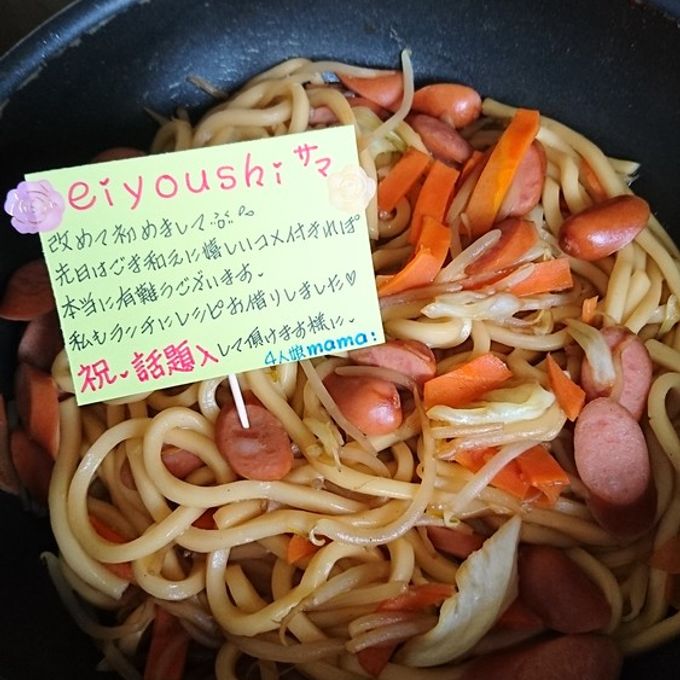 eiyoushiサマ
改めて初めまして
先日はごま和えに嬉しいコメ付きれぽ
本当に有難うございます
私もランチにレシピお借りしました♡
祝、話題入して頂けます様に、
4人娘mama: